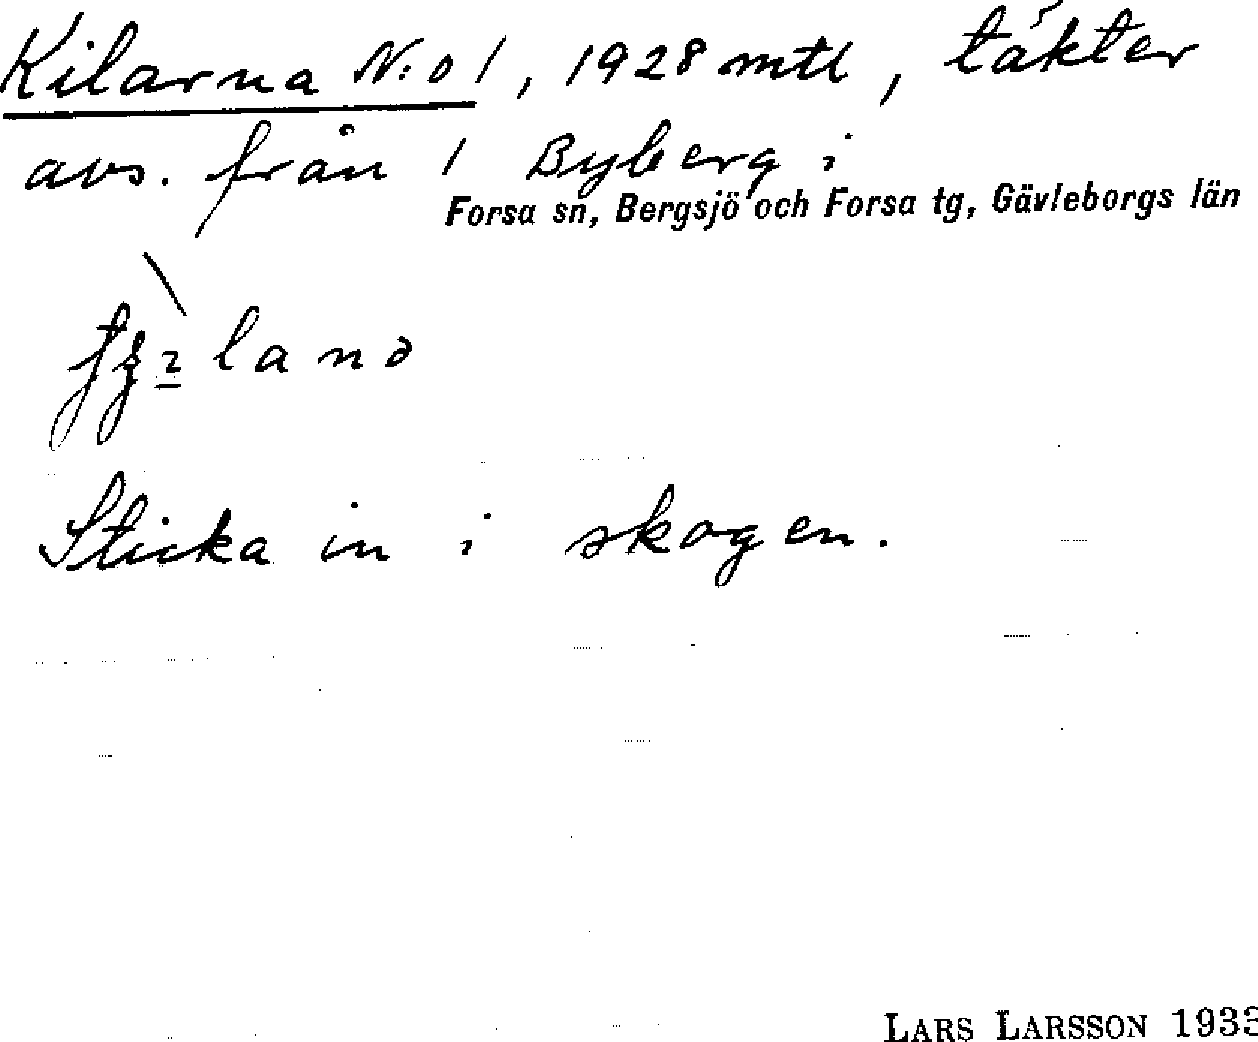 Kilarna N:o 1, 1928 mtl, täkter
avs. från 1 Byberg i
Forsa sn, Bergsjö och Forsa tg, Gävleborgs län
land
Sticka in i skogen.
LARS LARSSON 1933